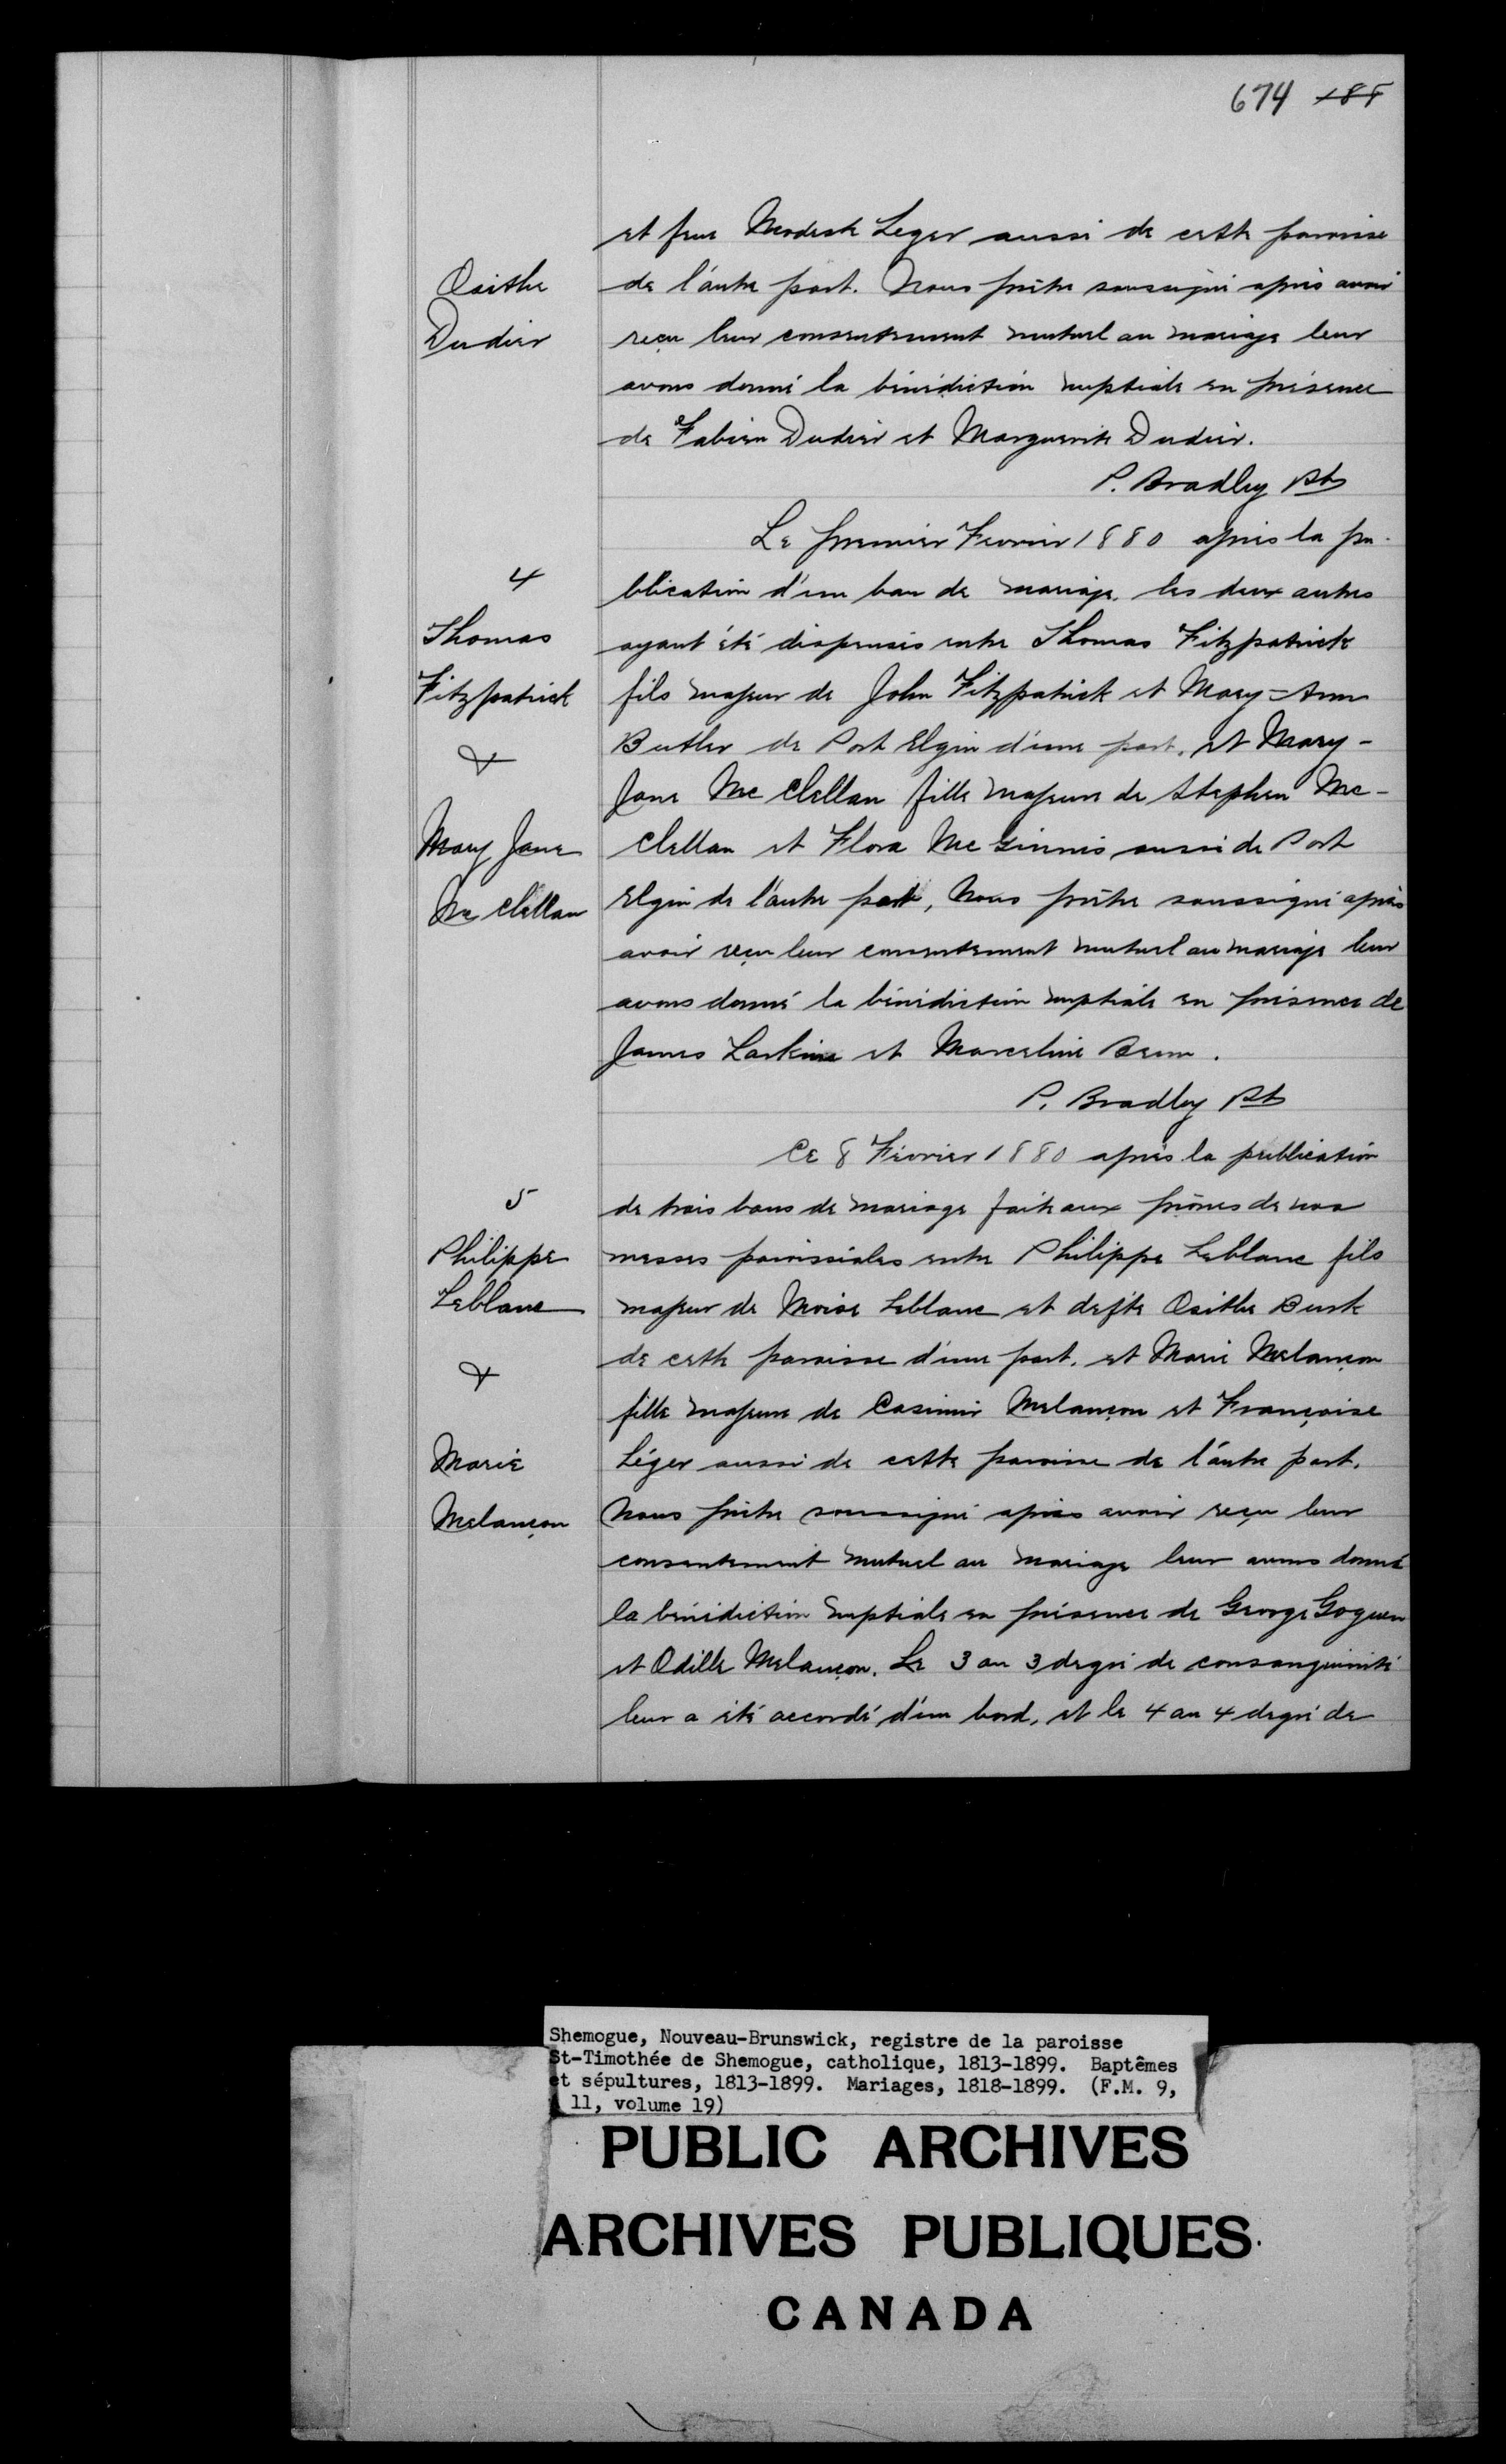 674 185
et feue Modeste Leger aussi de cette paroisse
Osithe
de l'autre part. Nous prêtre soussigné après avoir
Dudier
reçu leur consentement mutuel au mariage leur
avons donné la bénédiction nuptiale en présence
de Fabien Dudier et Marguerite Dudier.
P. Bradley Pt
Le premier Fevrier 1880 après la pu-
4
blication d'un ban de mariage, les deux autres
Thomas
ayant été dispensés entre Thomas Fitzpatrick
Fitzpatrick
fils majeur de John Fitzpatrick et Mary-Ann
&
Butler de Port Elgin d'une part, et Mary-
Jane Mc Clellan fille majeure de Stephen Mc-
Mary Jane
Clellan et Flora Mc Ginnis aussi de Port
Mc Clellan
Elgin de l'autre part, Nous prêtre soussigné après
avoir reçu leur consentement mutuel au mariage leur
avons donné la bénédiction nuptiale en présence de
James Larkins et Marceline Brun.
P. Bradley Pt
Ce 8 Février 1880 après la publication
5
de trois bans de mariage faite aux prônes de nos
Philippe
messes paroissiales entre Philippe Leblanc fils
Leblanc
majeur de Moise Leblanc et defte Osithe Burk
&
de cette paroisse d'une part, et Marie Melançon
fille majeure de Casimir Melançon et Françoise
Marie
Léger aussi de cette paroisse de l'autre part.
Melançon
Nous prêtre soussigné après avoir reçu leur
consentement mutuel au mariage leur avons donné
la bénédiction nuptiale en présence de George Goguen
et Odille Melançon. Le 3 au 3 degré de consanguinité
leur a été accordé d'un bord, et le 4 au 4 degré de
Shemogue, Nouveau-Brunswick, registre de la paroisse
St-Timothée de Shemogue, catholique, 1813-1899. Baptêmes
et sépultures, 1813-1899. Mariages, 1818-1899. (F.M. 9,
11, volume 19)
PUBLIC ARCHIVES
ARCHIVES PUBLIQUES
CANADA